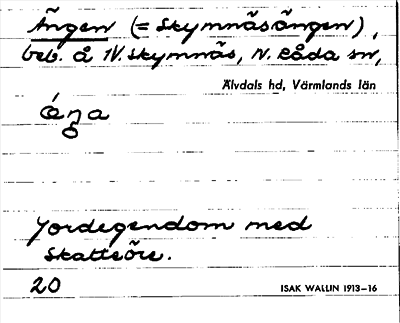 Ängen (= Skymnäsängen),
beb. å N. Skymnäs, N. Råda sn,
Älvdals hd, Värmlands län
Jordegendom med
skatteöre.
20 ISAK WALLIN 1913–16